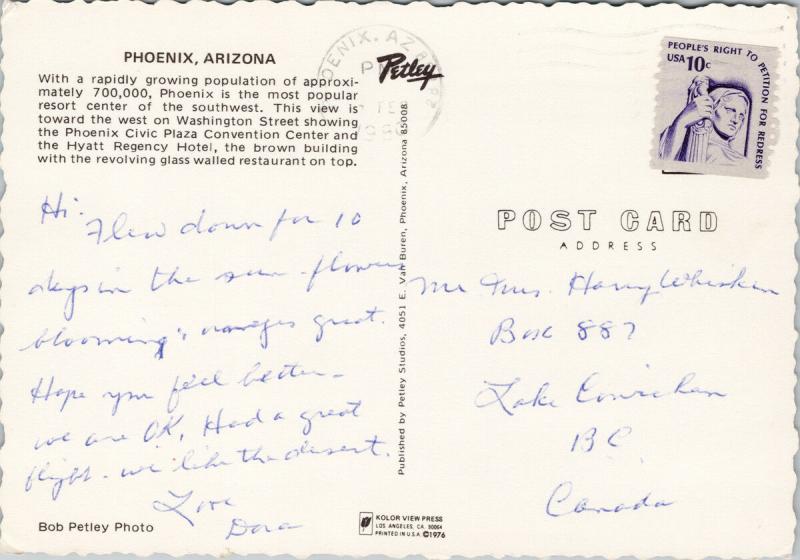 PHOENIX, ARIZONA
With a rapidly growing population of approxi-
mately 700,000, Phoenix is the most popular
resort center of the southwest. This view is
toward the west on Washington Street showing
the Phoenix Civic Plaza Convention Center and
the Hyatt Regency Hotel, the brown building
with the revolving glass walled restaurant on top.
Hi.
Flew down for 10
days in the sun - flowers
blooming, oranges great.
Hope you feel better -
we are OK, Had a great
flight - we like the desert.
Love
Dora
Bob Petley Photo
PHOENIX, AZ
PM
Petley
Published by Petley Studios, 4051 E. Van Buren, Phoenix, Arizona 85008
KOLOR VIEW PRESS
LOS ANGELES, CA. 90064
PRINTED IN U.S.A. ©1976
PEOPLE'S RIGHT TO PETITION FOR REDRESS
USA 10c
POST CARD
ADDRESS
Mr. Mrs. Harry Whisken
Box 887
Lake Cowichan
BC
Canada